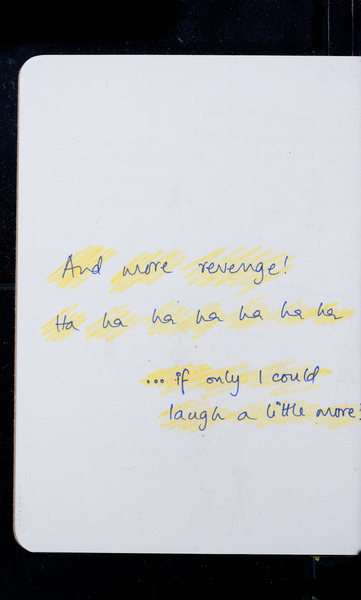 And more revenge!
Ha ha ha ha ha ha ha
... if only I could
laugh a little more!